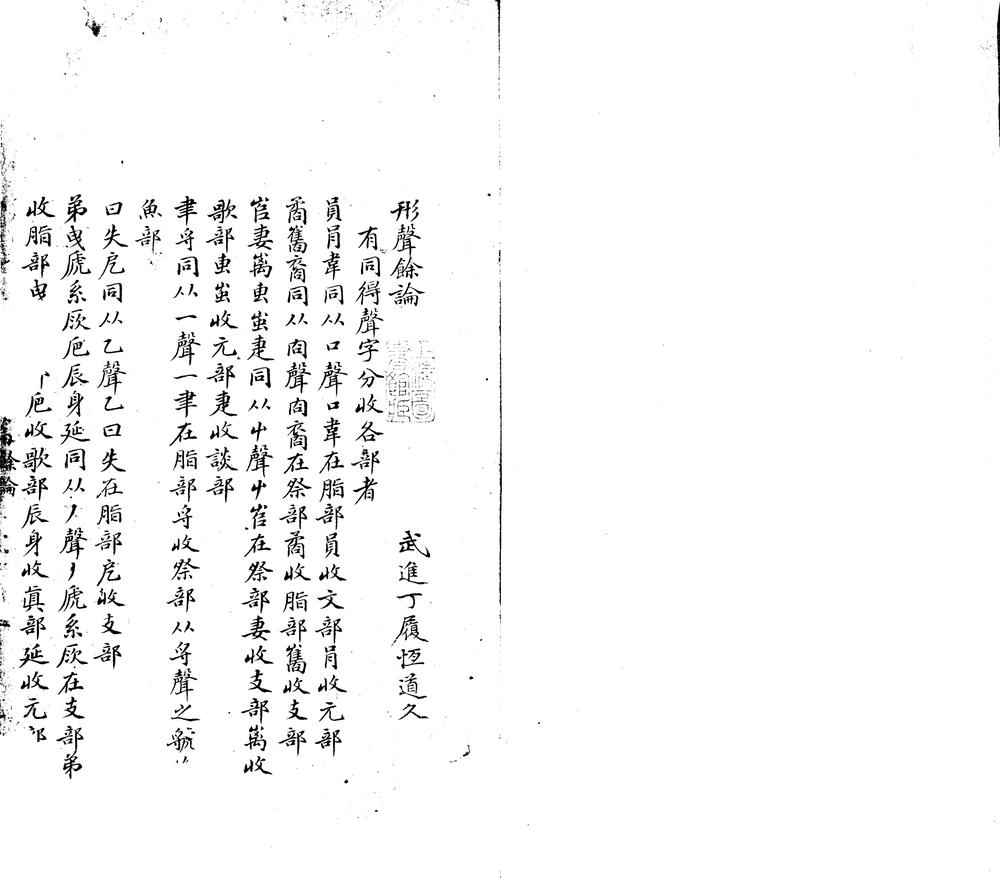 形聲餘論
武進丁履恆道久
有同得聲字分收各部者
員肙韋同从口聲口韋在脂部員收文部肙收元部
矞舊裔同从㕯聲㕯裔在祭部矞收脂部舊收支部
峕妻萬叀蚩疌同从屮聲屮峕在祭部妻收支部萬收
歌部叀蚩收元部疌收談部
聿寽同从一聲一聿在脂部寽收祭部从寽聲之虢
魚部
曰失戹同从乙聲乙曰失在脂部戹收支部
弟曳虒系厥卮辰身延同从丿聲丿虒系厥在支部弟
收脂部曳 卮收歌部辰身收眞部延收元部
餘論